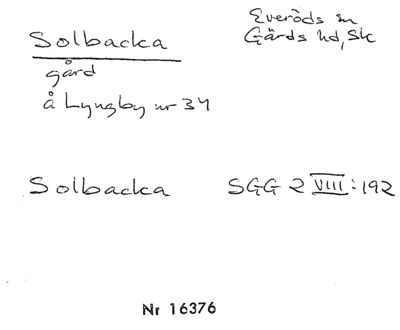 Solbacka
Everöds sn
Gärds hd, Sk
gård
å Lyngby nr 34
Solbacka SGG 2 VIII:192
Nr 16376